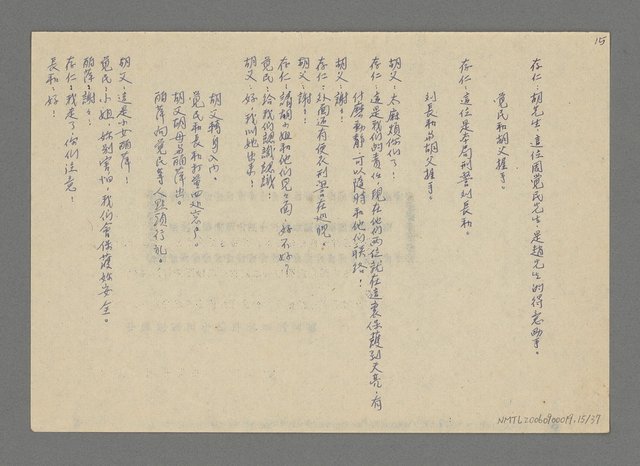 15
存仁：胡先生，這位周覺民先生，是趙先生的得意助手。
覺民和胡父握手。
存仁：這位是本局刑警刘長和。
刘長和与胡父握手。
胡父：太麻煩你们了！
存仁：這是我们的責任，現在他们两位就在這裏保護到天亮，有
什麼動靜，可以隨時和他们联絡！
胡父：謝々！
存仁：外面還有便衣刑警在巡視。
胡父：謝々！
存仁：請胡小姐和他们見个面，好不好？
覺民：給我们認識認識
胡父：好，我叫她出來！
胡父轉身入內。
覺民和長和打量四处
胡父胡母与丽萍出。
丽萍向覺民等人點頭行礼。
胡父：這是小女丽萍！
覺民：小姐，妳別害怕，我们會保護妳安全。
丽萍：謝々。
存仁：我走了，你们注意！
長和：好！
NMTL20060900019.15/37